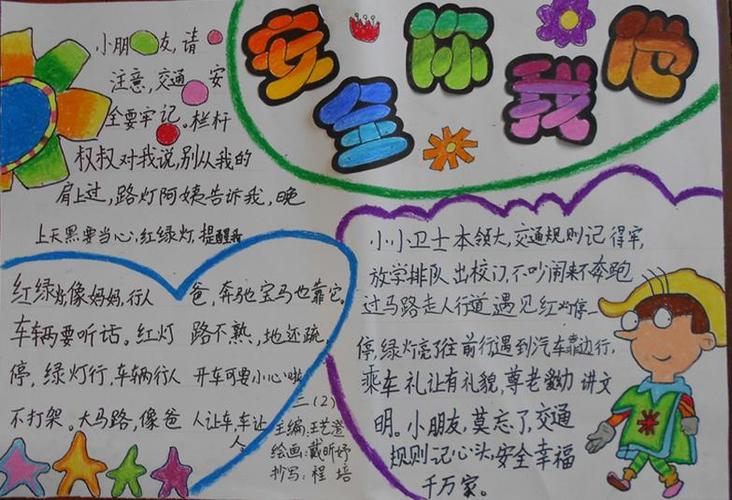 安全你我他
小朋友,请
注意,交通安
全要牢记。栏杆
权权对我说,别从我的
肩上过,路灯阿姨告诉我,晚
上天黑要当心,红绿灯,提醒我
红绿灯像妈妈,行人
车辆要听话。红灯
停,绿灯行,车辆行人
不打架。大马路,像爸
爸,奔驰宝马也靠它。
路不熟,地还疏,
开车可要小心啦
人让车,车让
人。
三(2)
主编:王艺澄
绘画:戴昕妤
抄写:程培
小小卫士本领大,交通规则记得牢,
放学排队出校门,不吵闹来不奔跑
过马路走人行道遇见红灯停一
停,绿灯亮了往前行遇到汽车靠边行,
乘车礼让有礼貌,尊老爱幼讲文
明。小朋友,莫忘了,交通
规则记心头,安全幸福
千万家。